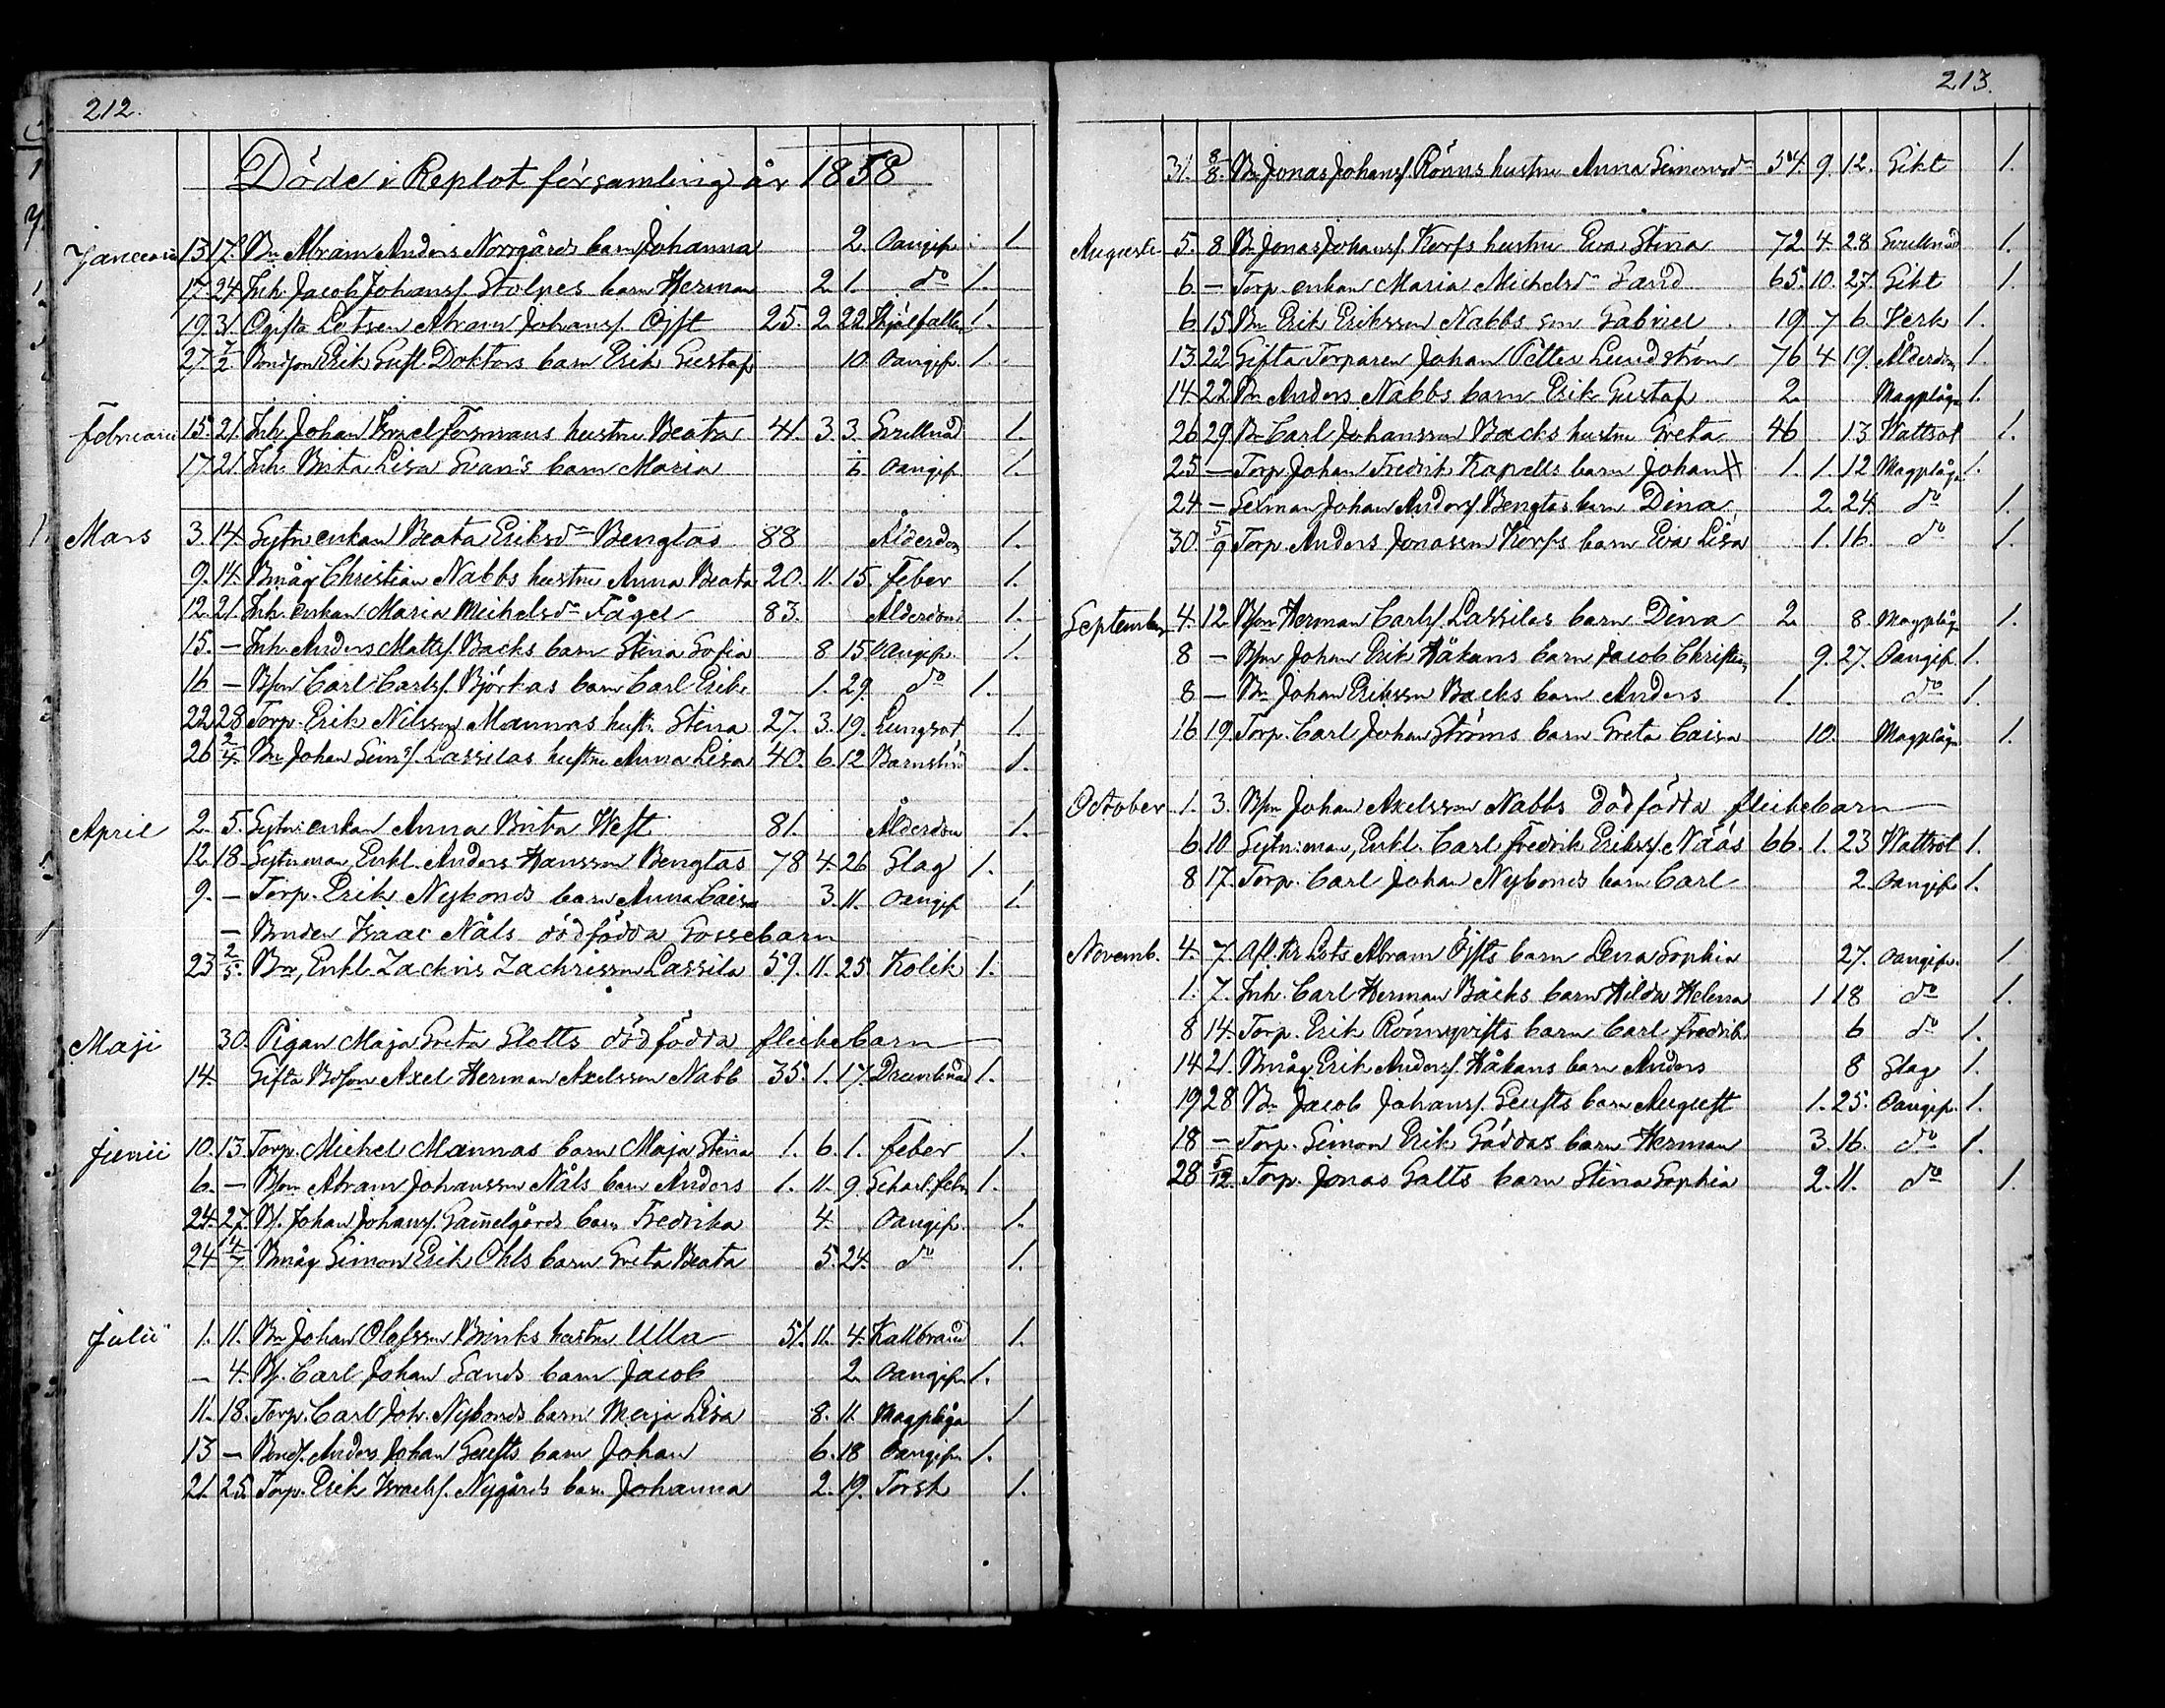 212.
Döde i Replot församling år 1858
Januarii 13 17. Bn Abram Anders Norrgårds barn Johanna 2. Oangifn. 1
17. 24. Inh. Jacob Johanss. Stolpes barn Herman 2. 1. do 1.
19. 31. Ogifta Lotsen Abram Johanss. Öfst 25. 2. 22. 1.
27. 7/2. Bondson Erik Gust. Doktors barn Erik Gustaf 10. Oangifn. 1.
Februarii 15. 21. Inh. Johan Israel Forsmans hustru Beata 41. 3. 3. Svullnad 1.
17. 21. Inh. Brita Lisa Svan's barn Maria 1/6. Oangifn 1.
Mars 3. 14. Sytn. enkan Beata Eriksdr Bengtas 88 Ålderdom 1.
9. 14. Bmåg Christian Nabbs hustru Anna Beata 20. 11. 15. Feber 1.
12. 21. Inh. enkan Maria Michelsdr Fågel 83. Ålderdom 1.
15. — Inh. Anders Matts. Backs barn Stina Sofia 8 15 Oangifn. 1.
16 — Bson Carl Carlss. Björkas barn Carl Erik 1. 29. do 1.
22 28. Torp. Erik Nilsson Mannas hust. Stina 27. 3. 19. Lungsot 1.
26 2/4. Bn Johan Sims. Lassilas hustru Anna Lisa 40. 6. 12 Barnsbörd 1.
April 2. 5. Sytn. enkan Anna Brita West 81. Ålderdom 1.
12. 18. Sytn.man, Enkl. Anders Hansson Bengtas 78 4. 26 Slag 1.
9. — Torp. Erik Nybonds barn Anna Caisa 3. 11. Oangif 1.
— Bonden Isaac Nåls dödfödda Gossebarn
23 2/5. Bn, Enkl. Zachris Zachrisson Lassila 59. 11. 25 Kolik 1.
Maji 30. Pigan Maja Greta Slotts dödfödda flickebarn
14. Gifta Bdson Axel Herman Axelsson Nabb 35. 1. 17. Drunknad 1.
Junii 10. 13. Torp. Michel Mannas barn Maja Stina 1. 6. 1. Feber 1.
6. — Bson Abram Johansson Nåls barn Anders 1. 11. 9. Scharl.feb. 1.
24. 27. Bs. Johan Johanss. Gammelgårds barn Fredrika 4. Oangifn. 1.
24. 4/7. Bmåg Simon Erik Ohls barn Greta Beata 5. 24. do 1.
Julii 1. 11. Bn Johan Olofsson Brinks hustru Ulla 51. 11. 4. Kallbrand 1.
— 4. Bs. Carl Johan Sands barn Jacob 2. Oangifn 1.
11. 18. Torp. Carl Joh. Nybonds barn Maja Lisa 8. 11. Magplåga 1
13 — Bonds. Anders Johan Geusts barn Johan 6. 18 Oangifn. 1.
21. 25. Torp. Erik Israelss. Nygårds barn Johanna 2. 19. Torsk 1.
213.
31. 8/8. Bn Jonas Johanss. Rönns hustru Anna Simonsdr 54. 9. 12. Gikt 1.
Augusti 5. 8. Bn Jonas Johanss. Korfs hustru Eva Stina 72 4. 28 Svullnad 1.
6. — Torp. enkan Maria Michelsdr Sand 65. 10. 27. Gikt 1.
6 15 Bn Erik Eriksson Nabbs son Gabriel 19 7 6. Verk 1.
13 22 Gifta Torparen Johan Petter Lundström 76 4 19. Ålderdom 1.
14 22 Bn Anders Nabbs barn Erik Gustaf 2. Magplåga 1.
26 29 Bn Carl Johansson Backs hustru Greta 46 13 Wattsot 1.
25 — Torp. Johan Fredrik Kapells barn Johan 1. 1. 12 Magplåga 1.
24 — Sexman Johan Anderss. Bengtas barn Dina 2. 24. do 1.
30. 5/9 Torp. Anders Jonasson Korfs barn Eva Lisa 1. 16. do 1.
September 4. 12. Bson Herman Carlss. Lassilas barn Dina 2. 8. Magplåga 1.
8 — Bson Johan Erik Håkans barn Jacob Christian 9. 27. Oangif. 1.
8 — Bn Johan Eriksson Backs barn Anders 1. do 1.
16 19. Torp. Carl Johan Ströms barn Greta Caisa 10. Magplåga 1.
October 1. 3. Bson Johan Axelsson Nabbs dödfödda flickebarn
6. 10. Sytn.man, Enkl. Carl Fredrik Erikss. Nääs 66. 1. 23 Wattsot 1.
8 17. Torp. Carl Johan Nybonds barn Carl 2. Oangifn 1.
Novemb. 4. 7. Lots Abram Öfsts barn Lena Sophia 27. Oangifn. 1
1. 7. Inh. Carl Herman Backs barn Hilda Helena 1 18 do 1.
8 14. Torp. Erik Rönnqvists barn Carl Fredrik 6 do 1.
14 21. Bmåg Erik Anderss. Håkans barn Anders 8 Slag 1.
19 28 Bn Jacob Johanss. Geusts barn August 1. 25. Oangifn. 1.
18 — Torp. Simon Erik Gäddas barn Herman 3. 16. do 1.
28 5/12. Torp. Jonas Galts barn Stina Sophia 2. 11. do 1.